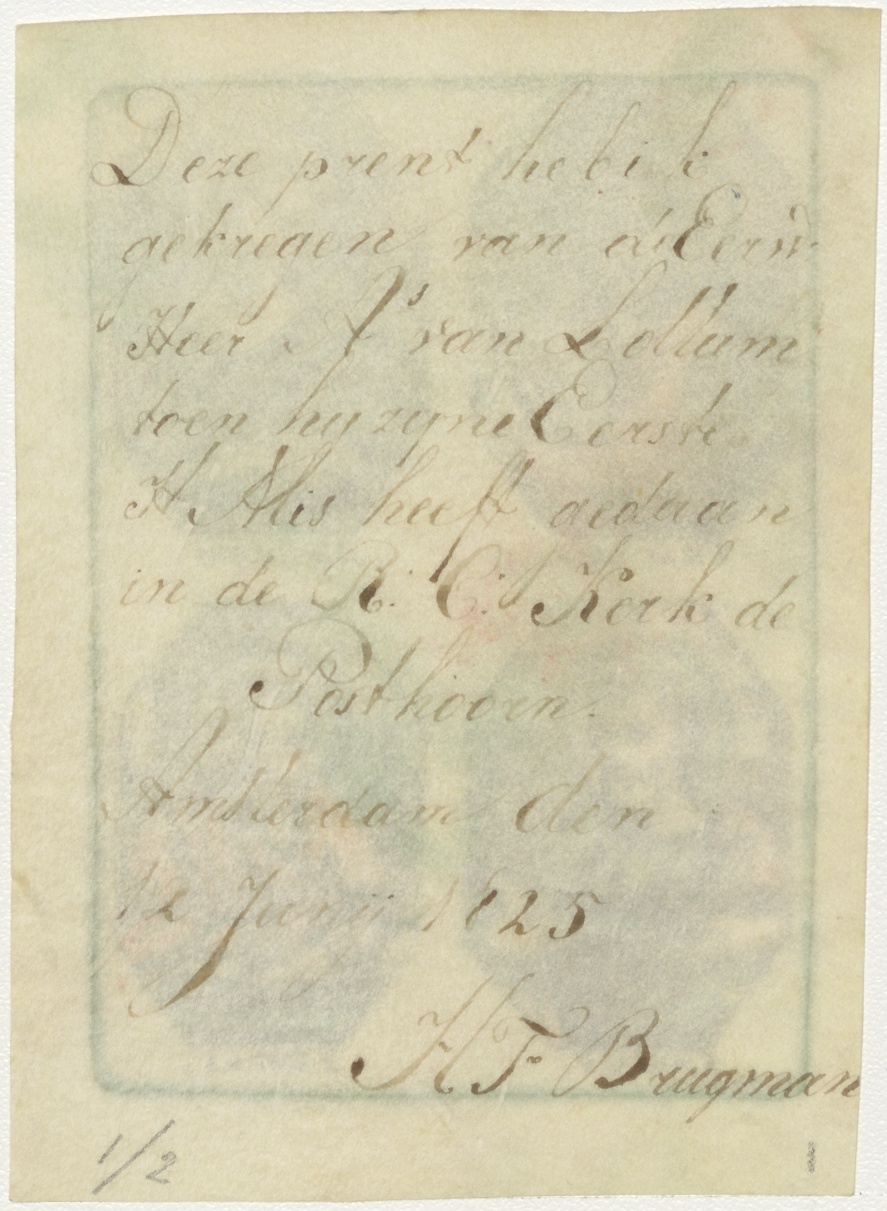 Deze prent heb ik
gekregen van de Eerw.
Heer Js van Lottum
toen hy zyne Eerste
H Mis heeft gedaan
in de R: C: Kerk de
Posthoorn.
Amsterdam den
12 Junij 1825
H F Brugman
1/2